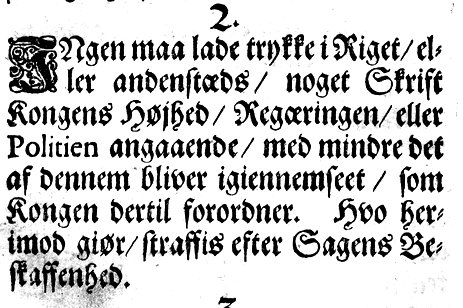 2.
INgen maa lade trykke i Riget/ el⸗
ler andenstæds/ noget Skrift
Kongens Højhed/ Regæringen/ eller
Politien angaaende/ med mindre det
af dennem bliver igiennemseet/ som
Kongen dertil forordner. Hvo her⸗
imod giør/ straffis efter Sagens Be⸗
skaffenhed.